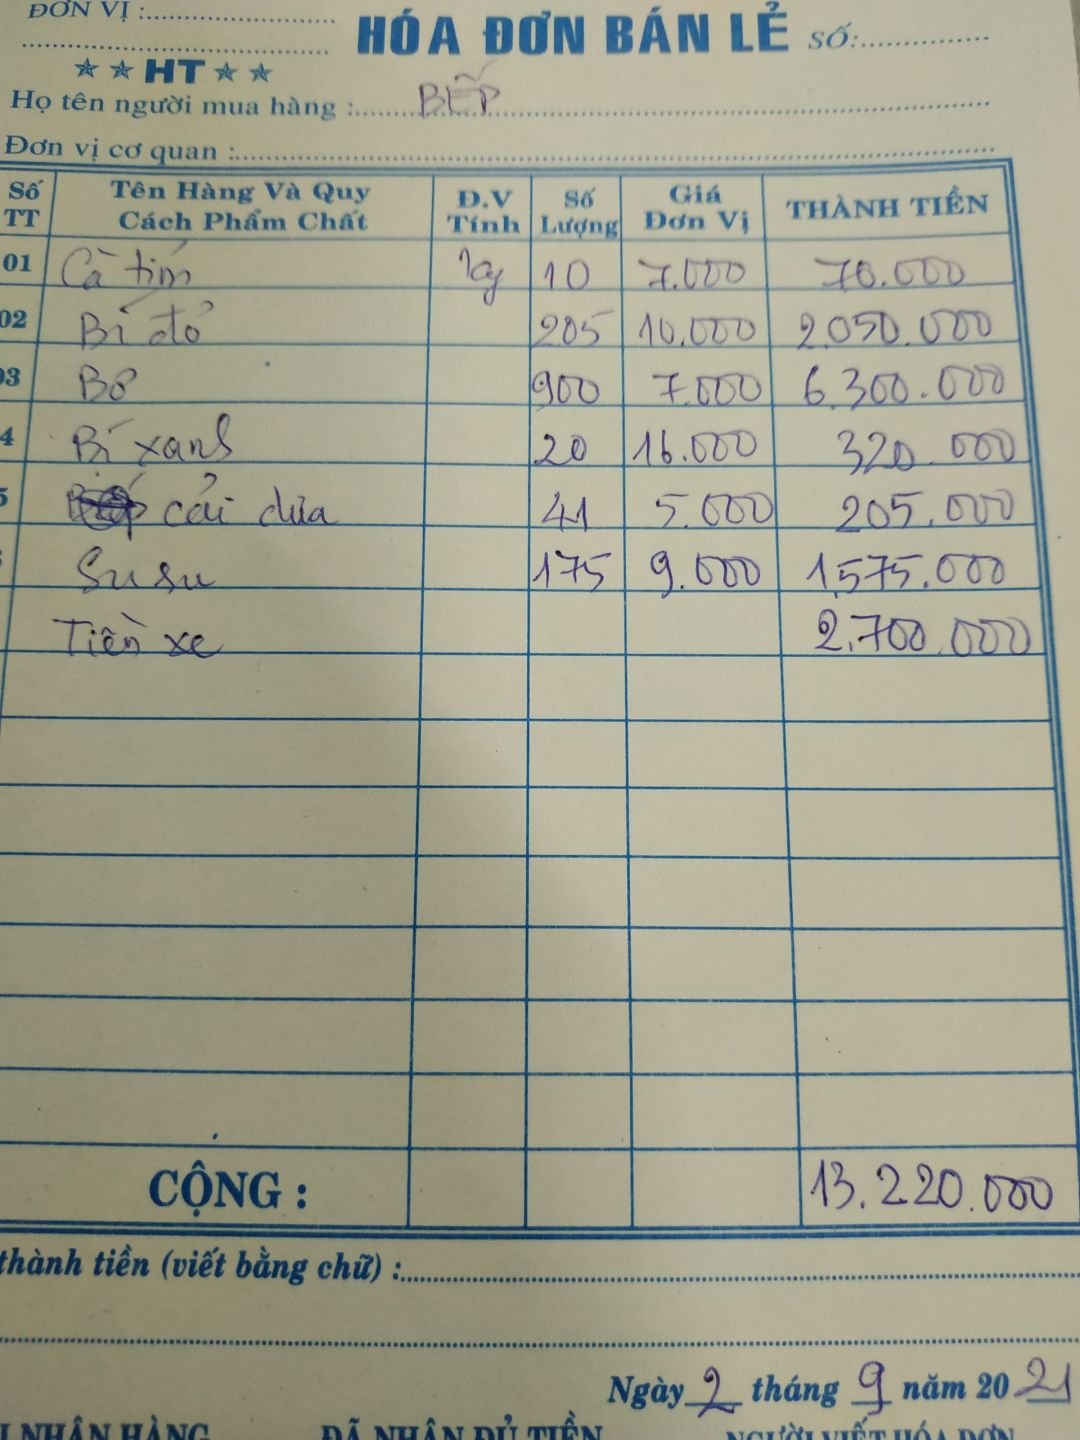 ĐƠN VỊ :
HÓA ĐƠN BÁN LẺ SỐ:
HT
Họ tên người mua hàng : BẾP
Đơn vị cơ quan :
Số TT Tên Hàng Và Quy Cách Phẩm Chất Đ.V Tính Số Lượng Giá Đơn Vị THÀNH TIỀN
01 Cà tím kg 10 7.000 70.000
02 Bí đỏ 205 10.000 2.050.000
03 Bơ 900 7.000 6.300.000
4 Bí xanh 20 16.000 320.000
5 cải dưa 41 5.000 205.000
Su su 175 9.000 1.575.000
Tiền xe 2.700.000
CỘNG : 13.220.000
thành tiền (viết bằng chữ) :
Ngày 2 tháng 9 năm 20 21
NHẬN HÀNG ĐÃ NHẬN ĐỦ TIỀN NGƯỜI VIẾT HÓA ĐƠN